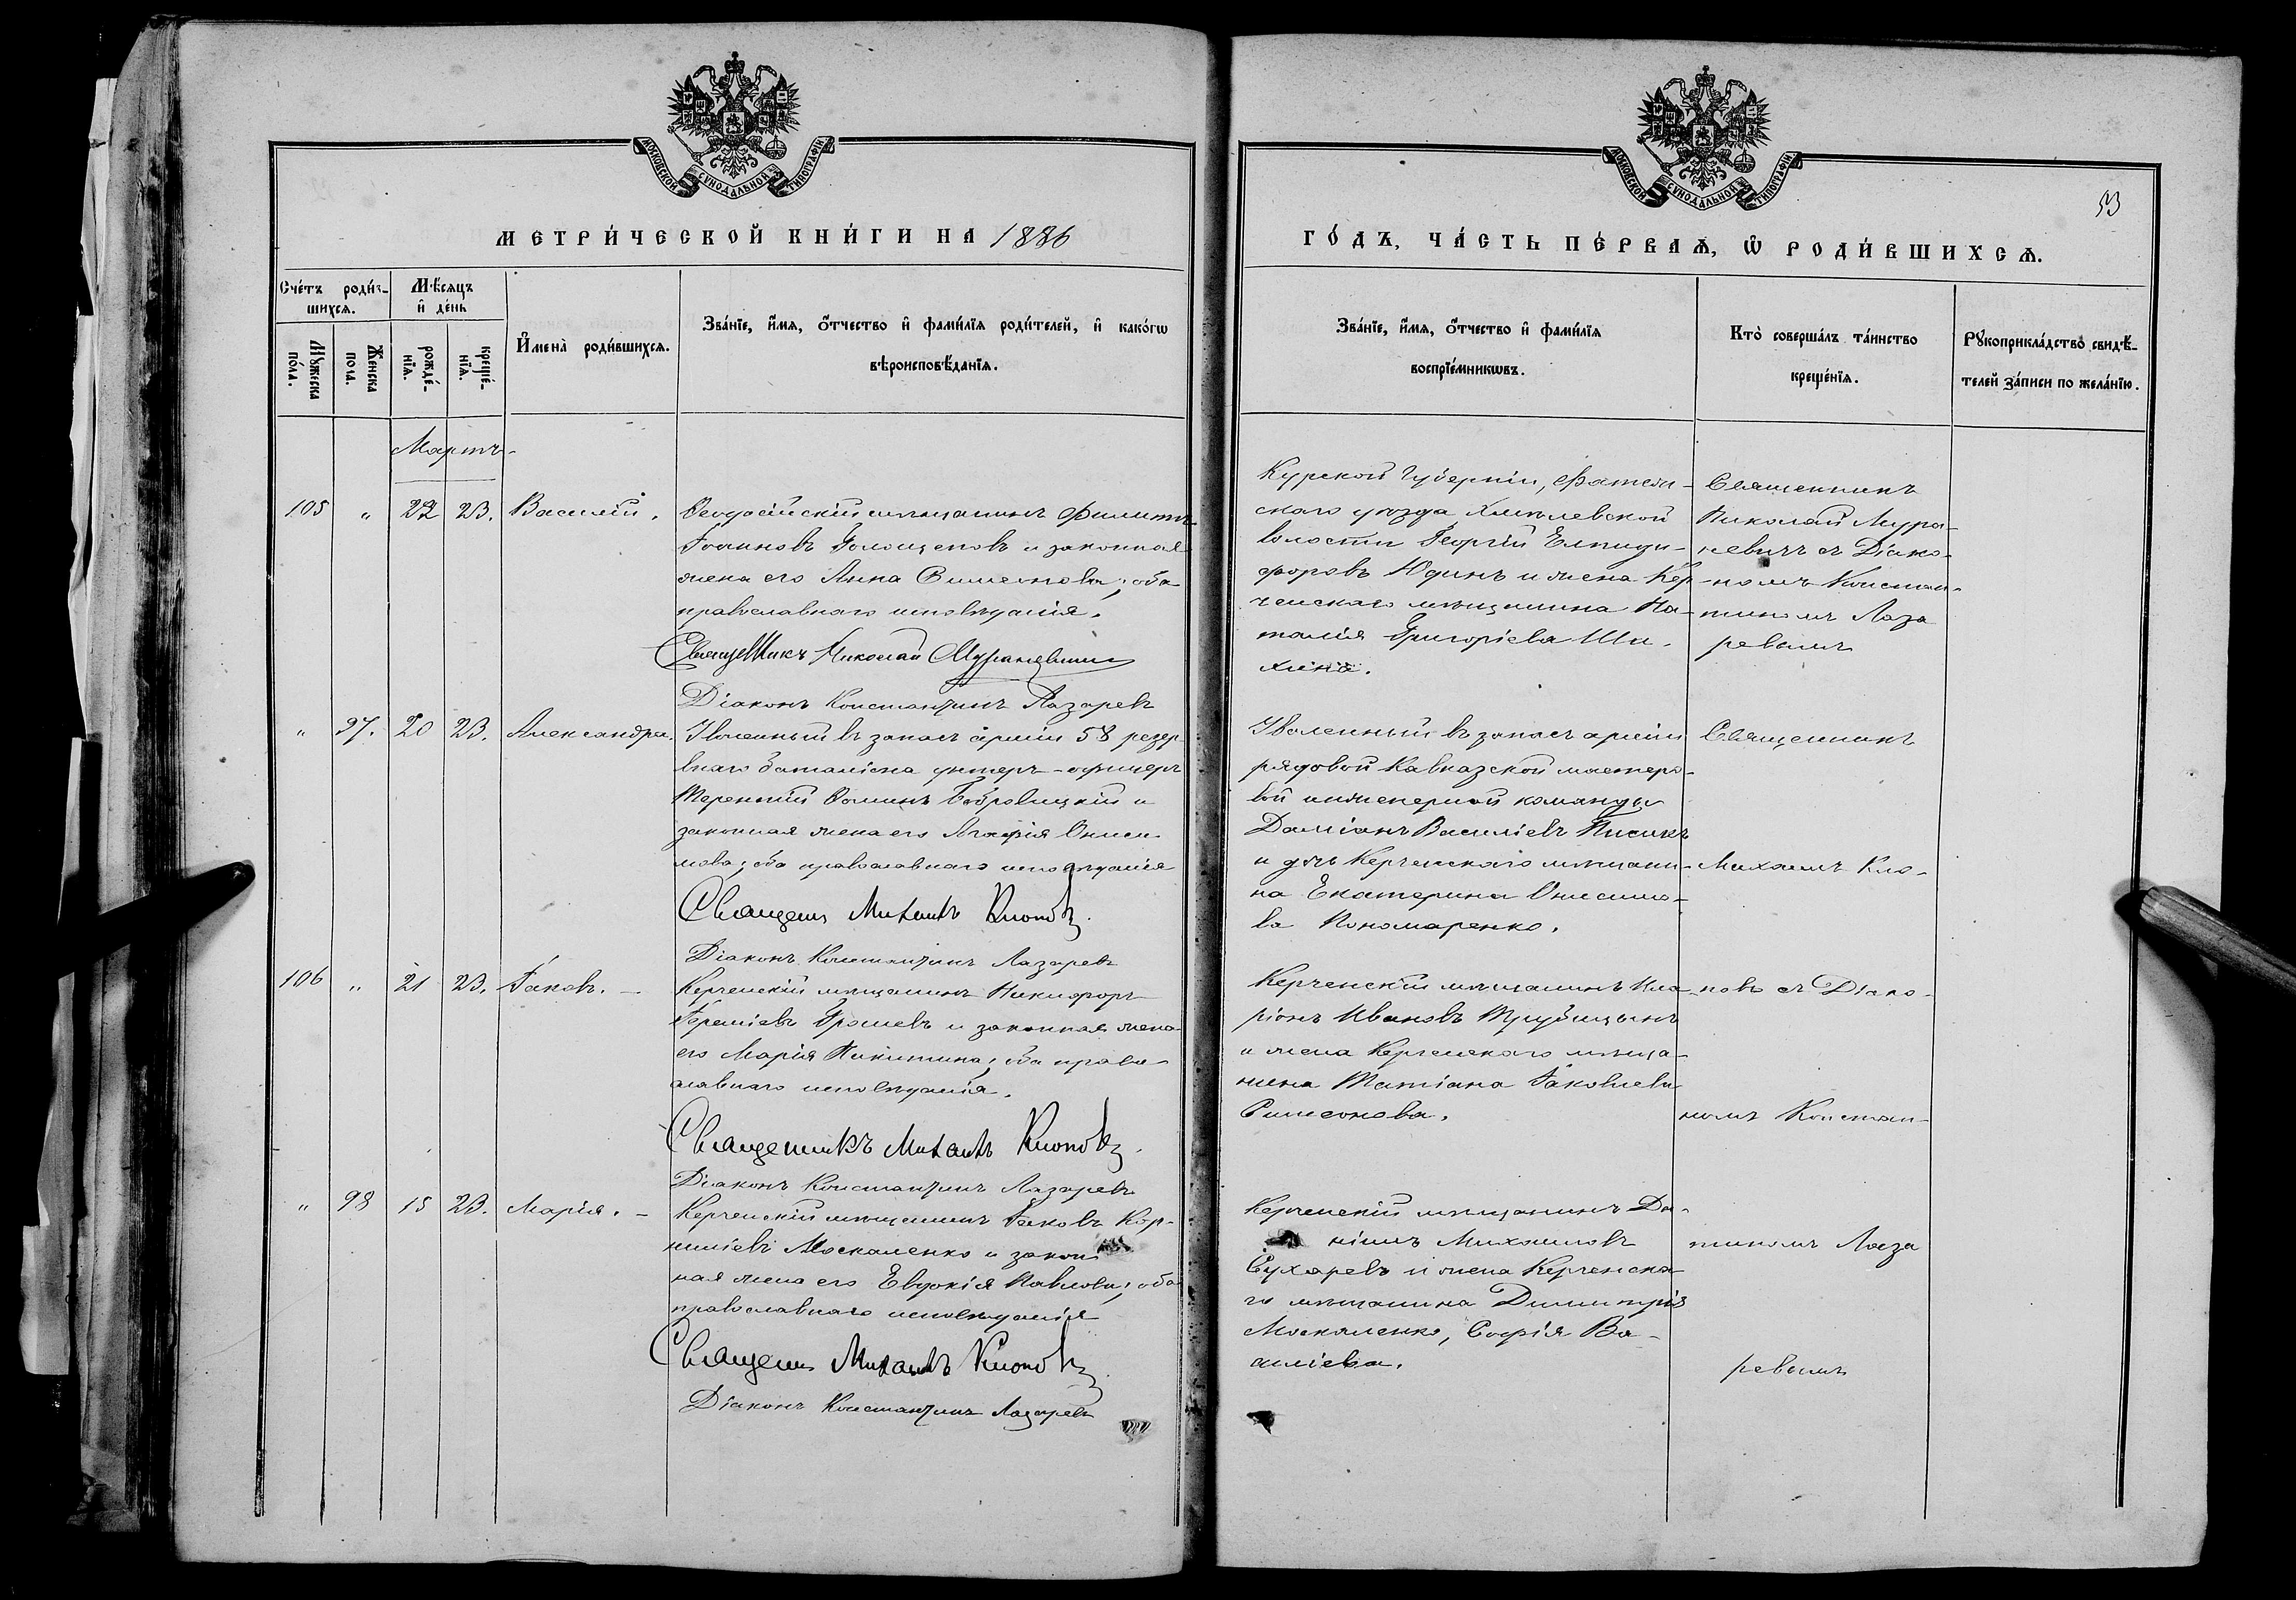 МОСКОВСКОЙ СУНОДАЛЬНОЙ ТИПОГРАФІИ
МЕТРИ́ЧЕСКОЙ КНИ́ГИ НА 1886
Сче́тъ роди́в-
шихсѧ.
Мѣ́сѧцъ
и҆ де́нь
Мꙋ́жеска
по́ла.
Же́нска
пола.
рожде́-
нїѧ.
креще́-
нїѧ.
И҆мена̀ роди́вшихсѧ.
Зва́нїе, и҆́мѧ, ѻ҆́тчество и҆ фами́лїѧ роди́телей, и҆ како́гѡ
вѣроисповѣ́данїѧ.
Мартъ.
105 " 22 23. Василій.
Ѳеодосійскій мѣщанинъ Филиппъ
Іоанновъ Голощеповъ и законная
жена его Анна Симеонова; оба
православнаго исповѣданія.
Священникъ Николай Мураневичъ
Діаконъ Константинъ Лазаревъ
" 97. 20 23. Александра.
Уволенный въ запасъ арміи 58 резер-
внаго баталіона унтеръ-офицеръ
Терентій Ѳоминъ Бобровицкій и
законная жена его Агафія Ониси-
мова; оба православнаго исповѣданія
Священ Михаилъ Клоповъ.
Діаконъ Константинъ Лазаревъ
106 " 21 23. Іаковъ. –
Керченскій мѣщанинъ Никифоръ
Іереміевъ Ерошевъ и законная жена
его Марія Никитина; оба право-
славнаго исповѣданія.
Священникъ Михаилъ Клоповъ.
Діаконъ Константинъ Лазаревъ
" 98 15 23. Марія. –
Керченскій мѣщанинъ Іаковъ Кор-
ниліевъ Москаленко и закон
ная жена его Евдокія Павлова; оба
православнаго исповѣданія
Священ Михаилъ Клоповъ
Діаконъ Константинъ Лазаревъ
МОСКОВСКОЙ СУНОДАЛЬНОЙ ТИПОГРАФІИ
53
ГО́ДЪ, ЧА́СТЬ ПЕ́РВАѦ, Ѡ҆ РОДИ́ВШИХСѦ.
Зва́нїе, и҆́мѧ, ѻ҆́тчество и҆ фами́лїѧ
воспрїе́мникѡвъ.
Кто̀ соверша́лъ та́инство
креще́нїѧ.
Рꙋкоприкла́дство свидѣ́-
телей за́писи по жела́нїю.
Курской Губерніи, Фатеж-
скаго уѣзда Хмѣлевской
волости Георгій Елпиди-
форовъ Юдинъ и жена Кер-
ченскаго мѣщанина На-
талія Григоріева Ши-
лина.
Священникъ
Николай Мура-
невичъ съ Діако-
номъ Констан-
тиномъ Лаза
ревымъ
Уволенный въ запасъ арміи
рядовой Кавказской мастеро-
вой инженерной команды
Даміанъ Василіевъ Писикъ
и дочь Керченскаго мѣщани-
на Екатерина Онисимо-
ва Пономаренко.
Священникъ
Михаилъ Кло-
Керченскій мѣщанинъ Ила-
ріонъ Ивановъ Трубицынъ
и жена Керченскаго мѣща-
нина Татіана Іаковлева
Симеонова.
повъ съ Діако-
номъ Констан-
Керченскій мѣщанинъ Да-
ніилъ Михаиловъ
Сухаревъ и жена Керченска-
го мѣщанина Димитрія
Москаленко, Софія Ва-
силіева.
тиномъ Лаза
ревымъ